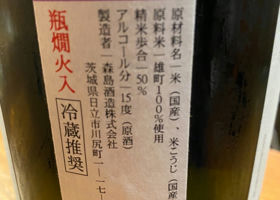 原材料名｜米（国産）、米こうじ（国産
原料米｜雄町100%使用
精米歩合｜50%
アルコール分｜15度（原酒）
製造者｜森島酒造株式会社
茨城県日立市川尻町一-一七-
瓶燗火入
冷蔵推奨